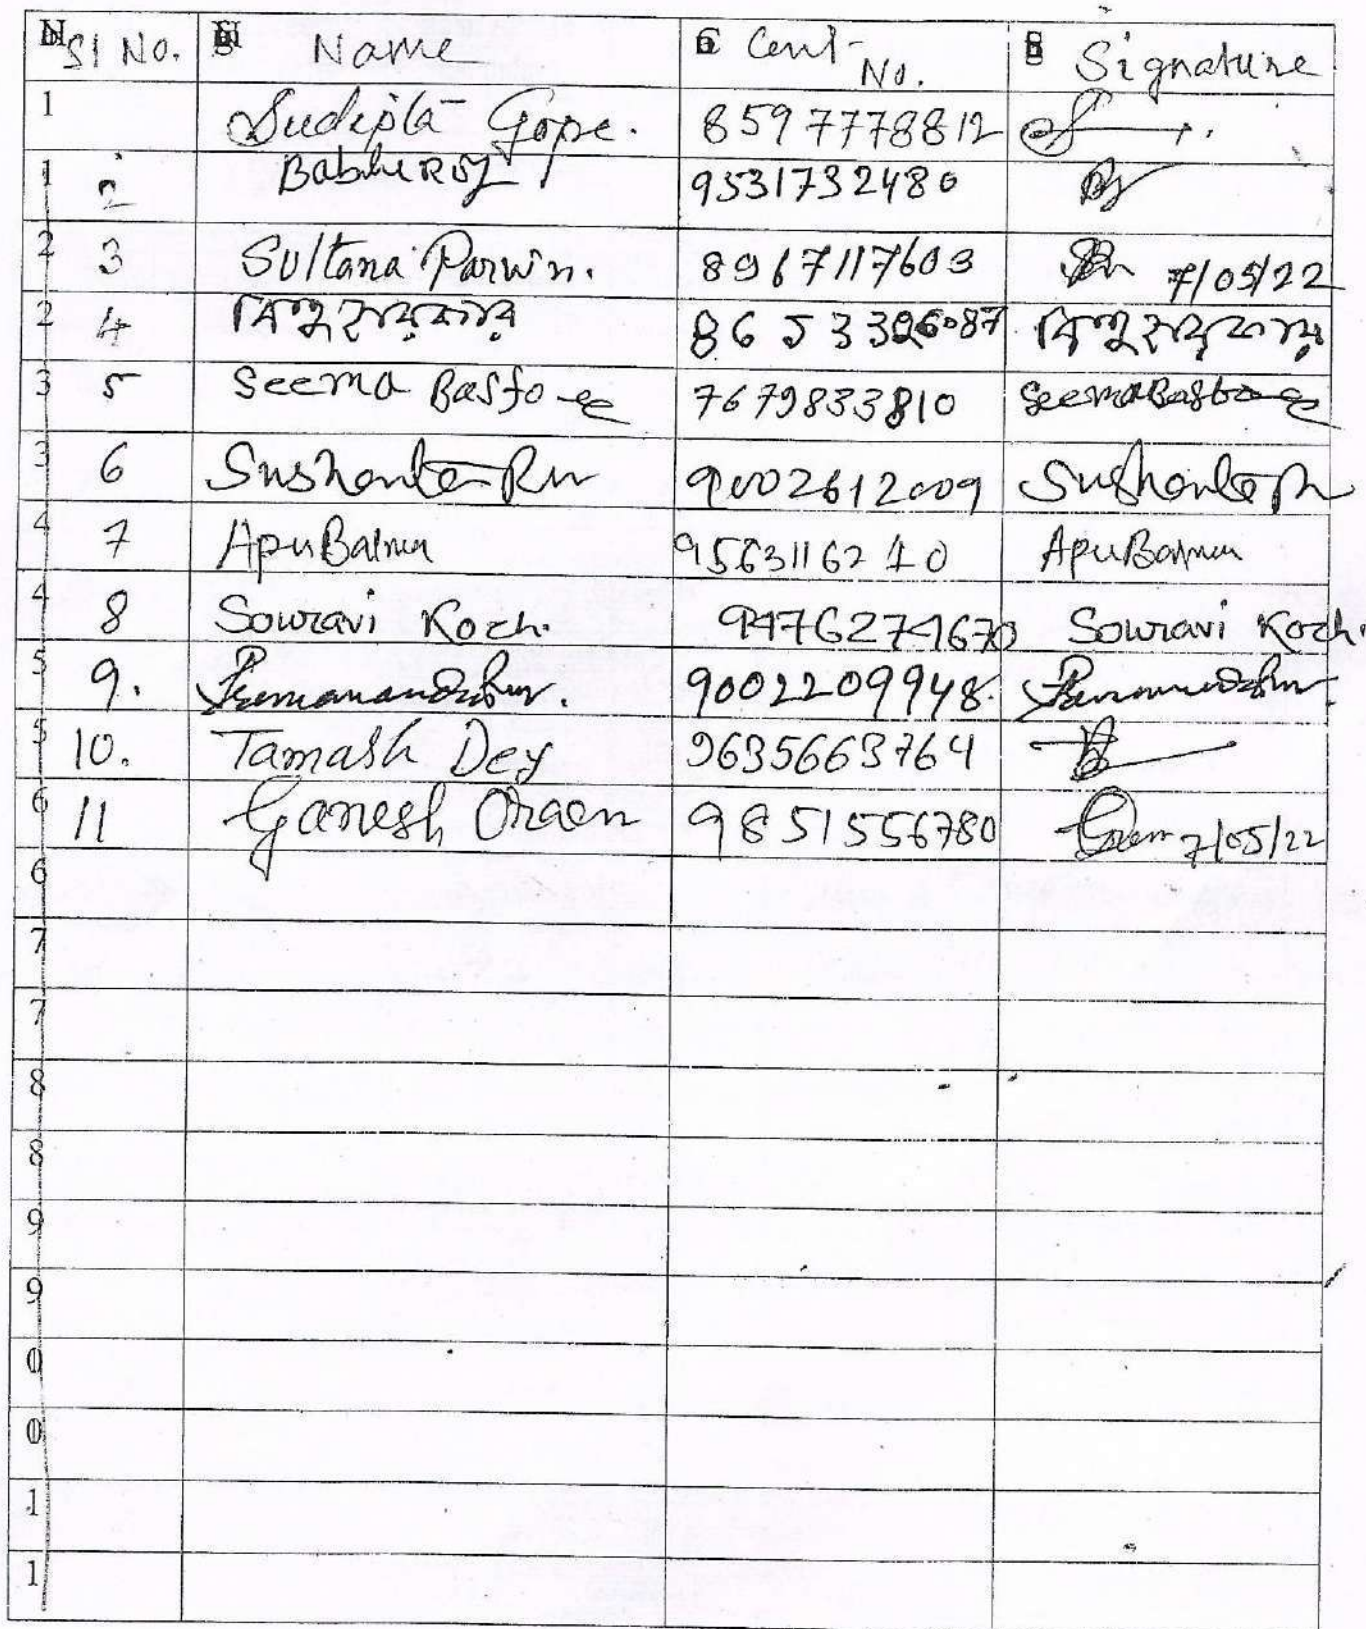 Sl No. Name Cont No. Signature
1 Sudipta Gope. 8597778812
1 2 Bablu Roy 9531732480
2 3 Sultana Parwin. 8967117603 7/05/22
2 4 8653326087
3 5 Seema Basfore 7679833810 Seema Basfore
3 6 Sushanta 9002612009 Sushanta
4 7 Apu Barman 9563116210 Apu Barman
4 8 Souravi Koch. 9476274670 Souravi Koch.
5 9. 9002209948.
5 10. Tamash Dey 9635663764
6 11 Ganesh Oraon 9851556780 7/05/22
6
7
7
8
8
9
9
0
0
1
1